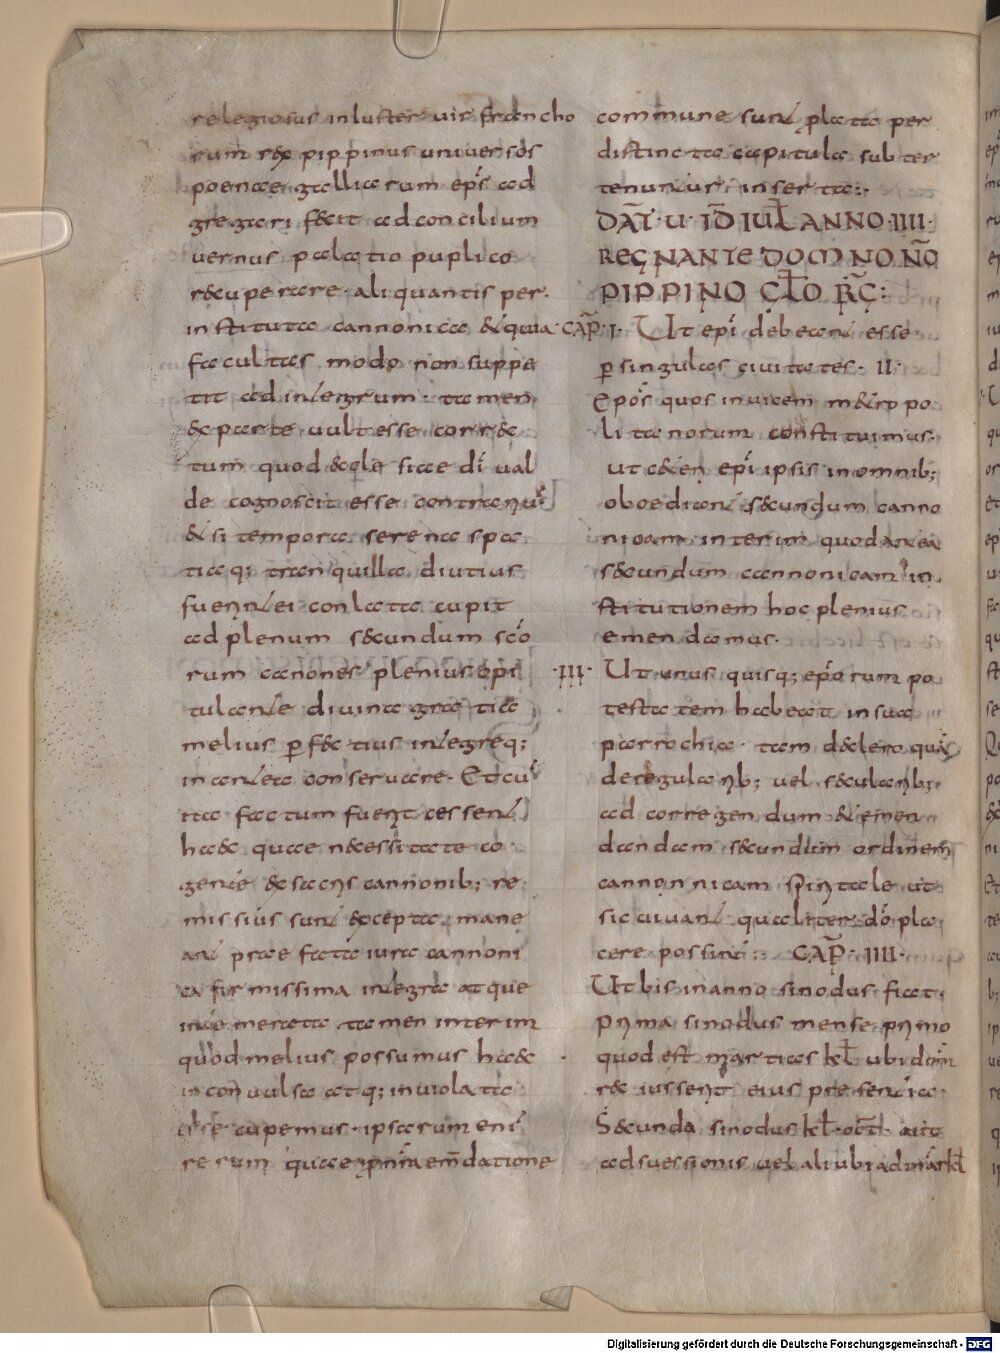 relegiosus inluster vir francho
rum rex pippinus universos
poenae galliarum ep̄s ad
gregari fecit ad concilium
vernus palatio puplico
recuperare aliquantis per·
instituta cannonica et quia
facultas modo non suppe
tit ad integrum· tamen
ex parte vult esse correc
tum quod eclesiae dī val
de cognoscit esse contrariū
et si tempora serena spa
tiaq; tranquilla diutius
fuerint ei conlata cupit
ad plenum secundum scōrum
rum canones plenius opi
tulante divina gratia
melius perfectius integreq;
in antea conservare· Et cū
ita factum fuerit cessent
haec quae necessitate co
gente ex sacris cannonib; re
missius sunt excepta mane
ant praefata iura cannoni
ca firmissima integra atque
intemerata tamen interim
quod melius possumus haec
inconvulsa atq; inviolata
esse cupemus· ipsarum eni
rerum quae pro nr̄a em̄datione
commune sunt placata per
distincta capitula subter
tenuntur inserta:·
DAT̄· U· ID̄ IUL̄ ANNO· IIII·
REGNANTE DOMNO NŌ
PIPPINO GL̄O RḠ:
CAP̄· I· Ut epī debeant esse
per singulas civitates· II·
Epōs quos invicem metropo
litanorum constituimus·
ut ceteri epī ipsis in omnib;
oboediant secundum canno
nicam interim quod antea
secundum cannonicam in
stitutionem hoc plenius
emendamus·
·III· Ut unus quisq; epōrum po
testatem habeat in sua
parrochia· tam de clero quā
de regularib; vel secularib;·
ad corregendum et emen
dandam secundum ordinem
cannonnicam spiritale ut
sic vivant qualiter dō pla
cere possint:· CAP̄· IIII·
Ut bis in anno sinodus fiat·
prima sinodus mense primo
quod est martias kl̄ ubi domn̄
rex iusserit eius presentia·
Secunda sinodus kl̄· oct̄· aut
ad suessionis vel aliubi ad mārkl̄
Digitalisierung gefördert durch die Deutsche Forschungsgemeinschaft - DFG